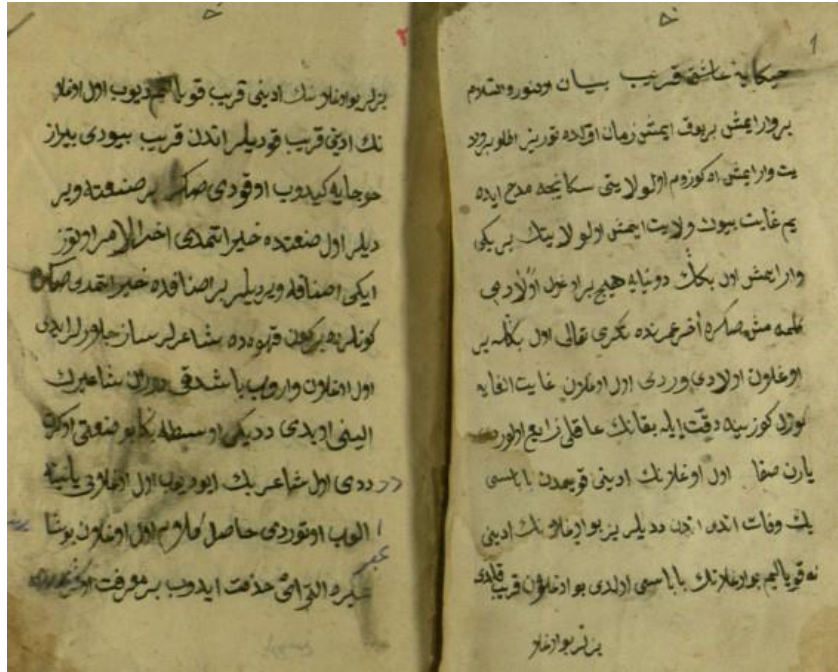 حيكايه عاشق قريب بيان اولنور والسلام
بر وار ايمش بر يوق ايمش زمان اولده توريز
يت وار ايمش اه كوزوم اول ولايتى سكا نيجه مدح ايده
يم غايت بيوك ولايت ايمش اول ولايتك بر بكى
وار ايمش اول بكك دونيايه هيچ بر اوغول اولادى
كلمه مش صكره أخر عمرنده تكرى تعالى اول بكه بر
اوغلون اولادى وردى اول اوغلون غايت الغايه
كوزل كوزينه دقت ايله بقانك عاقلى زايع اولور
يارن صفا اول اوغلانك ادينى قويمدن باباسى
بك وفات اتدى اندن ديديلر بز بو اوغلونك ادينى
نه قويالیم بو اوغلانك باباسى اولدى بو اوغلون قريب قلدى
بزلر بو اوغلو
بزلر بو اوغلونك ادينى قريب قويالم ديوب اول اوغلو
نك ادينى قريب قوديلر اندن قريب بيودى بيراز
حوجايه كيدوب اوقودى صكره بر صنعته وير
ديلر اول صنعتده خير اتمدى اخر الامر اوتوز
ايكى اصنافه ويرديلر بر اصنافده خير اتمدى صكره
كونلرده بر كون قهوه ده شاعرلر ساز چالورلر ايدى
اول اوغلون واروب باشدقى شاعيرك
الينى اوپدى ددى كى اوسطه بكا بو صنعتى اوكرت
ددى اول شاعر بك ايو ديوب اول اوغلونى يانينه
الوب اوتوردى حاصل كلام اول اوغلون بو شا
عيره التى اى خذمت ايدوب بر معرفت